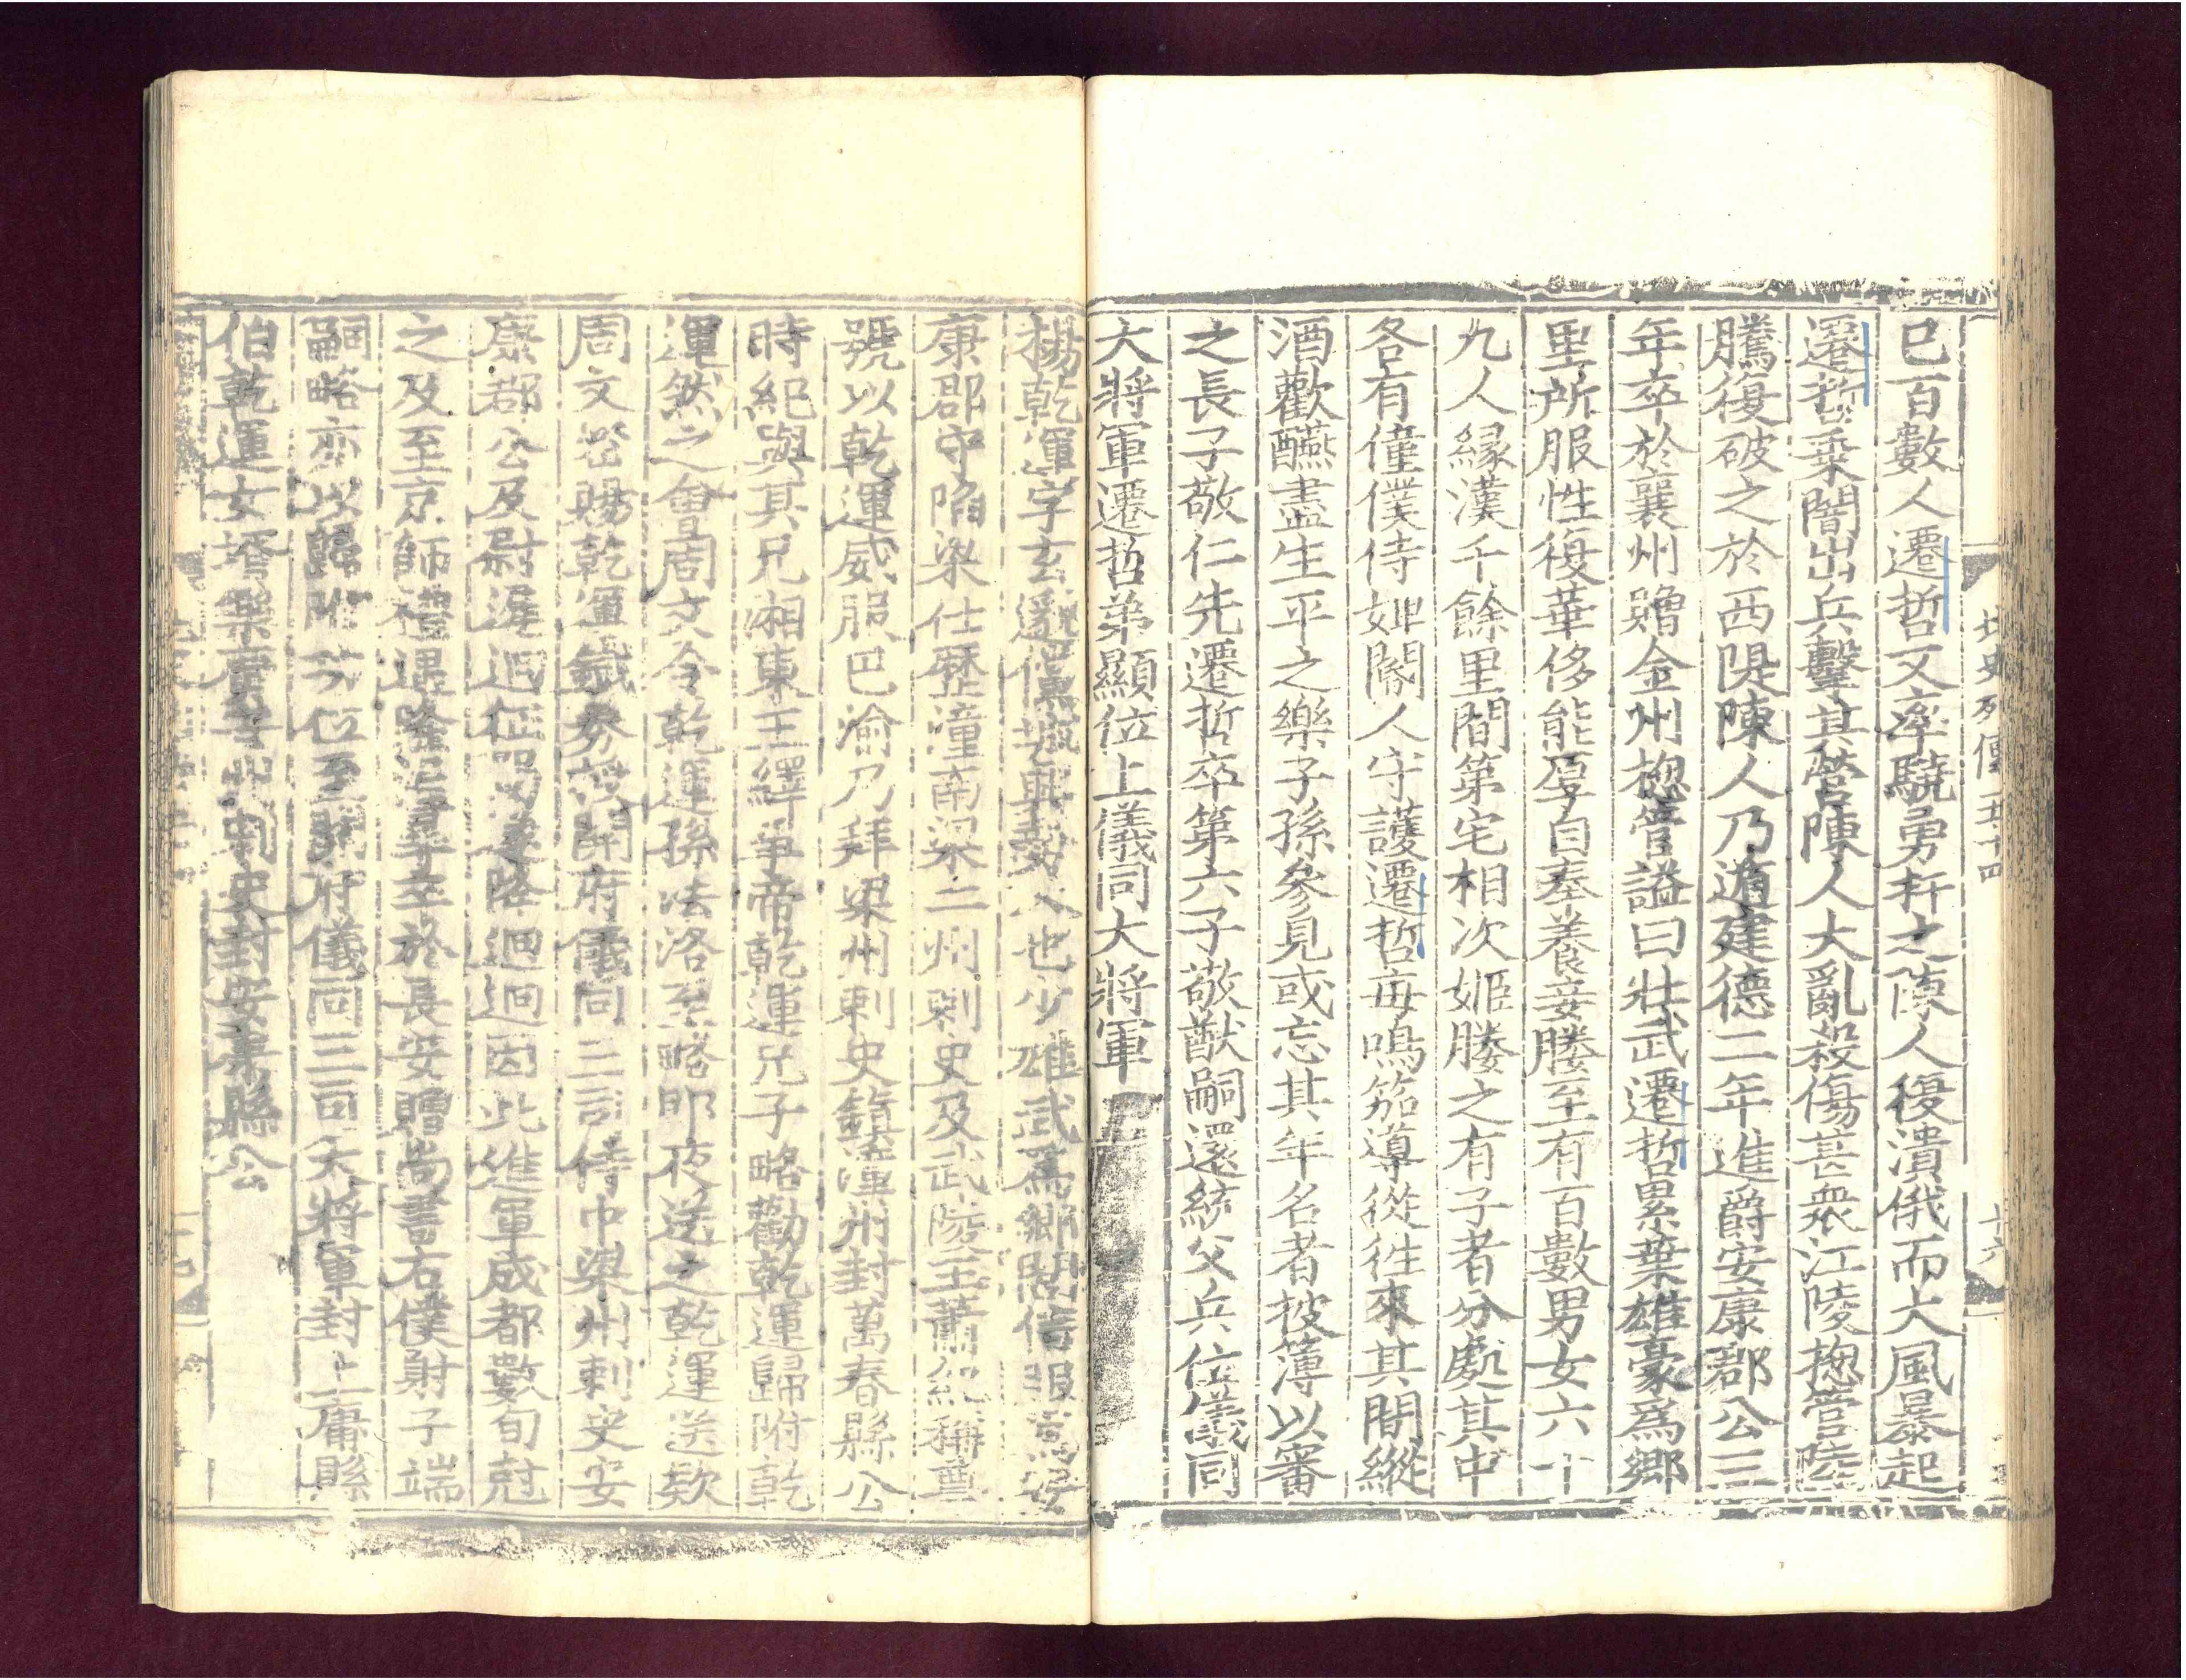 已百數人遷哲又率驍勇扞之陳人復潰俄而大風暴起
遷哲乗闇出兵擊其營陳人大亂殺傷甚衆江陵揔管陸
騰復破之於西隄陳人乃遁建德二年進爵安康郡公三
年卒於襄州贈金州揔管謚曰壯武遷哲累葉雄豪爲鄉
里所服性復華侈能厚自奉養妾媵至有百數男女六十
九人緣漢千餘里閒第宅相次姬媵之有子者分處其中
各有僮僕侍婢閽人守護遷哲每鳴笳導從徃來其閒縱
酒歡醼盡生平之樂子孫參見或忘其年名者披薄以審
之長子敬仁先遷哲卒第六子敬猷嗣還統父兵位儀同
大將軍遷哲弟顯位上儀同大將軍
北史列傳五十四
十六
楊乾運字玄邈儻城興勢人也少雄武爲鄉閭信服爲安
康郡守陷梁仕歷潼南梁二州刺史及武陵王蕭紀稱尊
號以乾運威服巴渝乃拜梁州刺史鎮潼州封萬春縣公
時紀與其兄湘東王繹爭帝乾運兄子略勸乾運歸附乾
運然之會周文令乾運孫法洛至略即夜送之乾運送款
周文密賜乾運鐵券授開府儀同三司侍中梁州刺史安
康郡公及尉遲迥征蜀遂降迥迥因此進軍成都數旬尅
之及至京師禮遇隆渥尋卒於長安贈尚書右僕射子端
嗣略亦以歸附功位至開府儀同三司大將軍封上庸縣
伯乾運女壻樂廣安州刺史封安康縣公